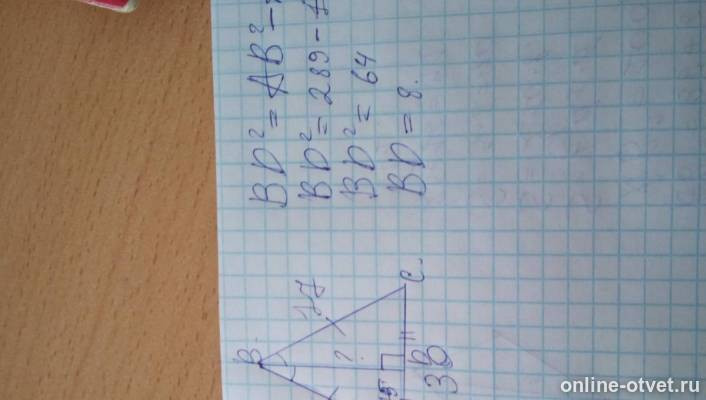 BD² = AB² -
BD² = 289 -
BD² = 64
BD = 8.
B.
17
?
C.
15
D
30
online-otvet.ru